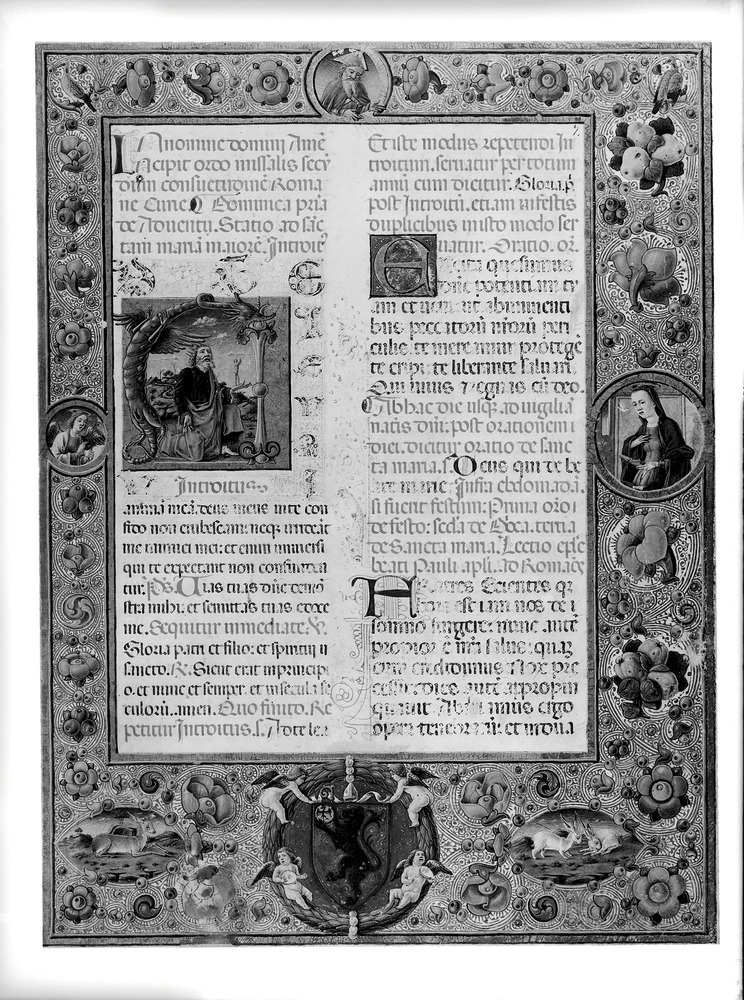 In nomine domini Amē
Incipit ordo missalis secū
dum consuetudinē Roma
ne Curie Dominica pria
de Adventu. Statio ad sāc
tam mariā maiorē. Introit9
A D T E
L E V A V I
Introitus
animā meā. deus meus in te con
fido non erubescam: neq irrideāt
me inimici mei: et enim universi
qui te expectant non confunden
tur. Ps. Vias tuas dn̄e demō
stra mihi: et semitas tuas edoce
me. Sequitur inmediate. V.
Gloria patri et filio: et spiritui s
sancto. R. Sicut erat in principi
o. et nunc et semper. et in secula se
culorū. amen. Quo finito. Re
petitur Introitus. s. Ad te le.
Et iste modus repetendi In
troitum. servatur per totum
annū cum dicitur. Gloria p.
post Introitū. etiam in festis
duplicibus in isto modo ser
vatur. Oratio. or.
Excita quesumus
dn̄e potentiam tu
am et veni. ut ab iminenti
bus peccatorū nr̄orū peri
culis. te mereamur protegē
te eripi: te liberante salvari.
Qui vivis et regnas cū deo.
Ab hac die usq ad vigiliā
natis dn̄i: post orationem
diei. dicitur oratio de sanc
ta maria. s. Deus qui de be
ate marie. Infra ebdomadā
si fuerit festum: Prima orō
de festo: secda de Dnica. tertia
de Sancta maria. Lectio eple
beati Pauli apli. ad Romāos
Fratres Scientes qr
hora est iam nos de
somno surgere: nunc autē
propior ē nr̄a salus: quaz
cum credidimus Nox pre
cessit: dies autē appropin
quavit. Abiciamus ergo
opera tenebrarū: et indua